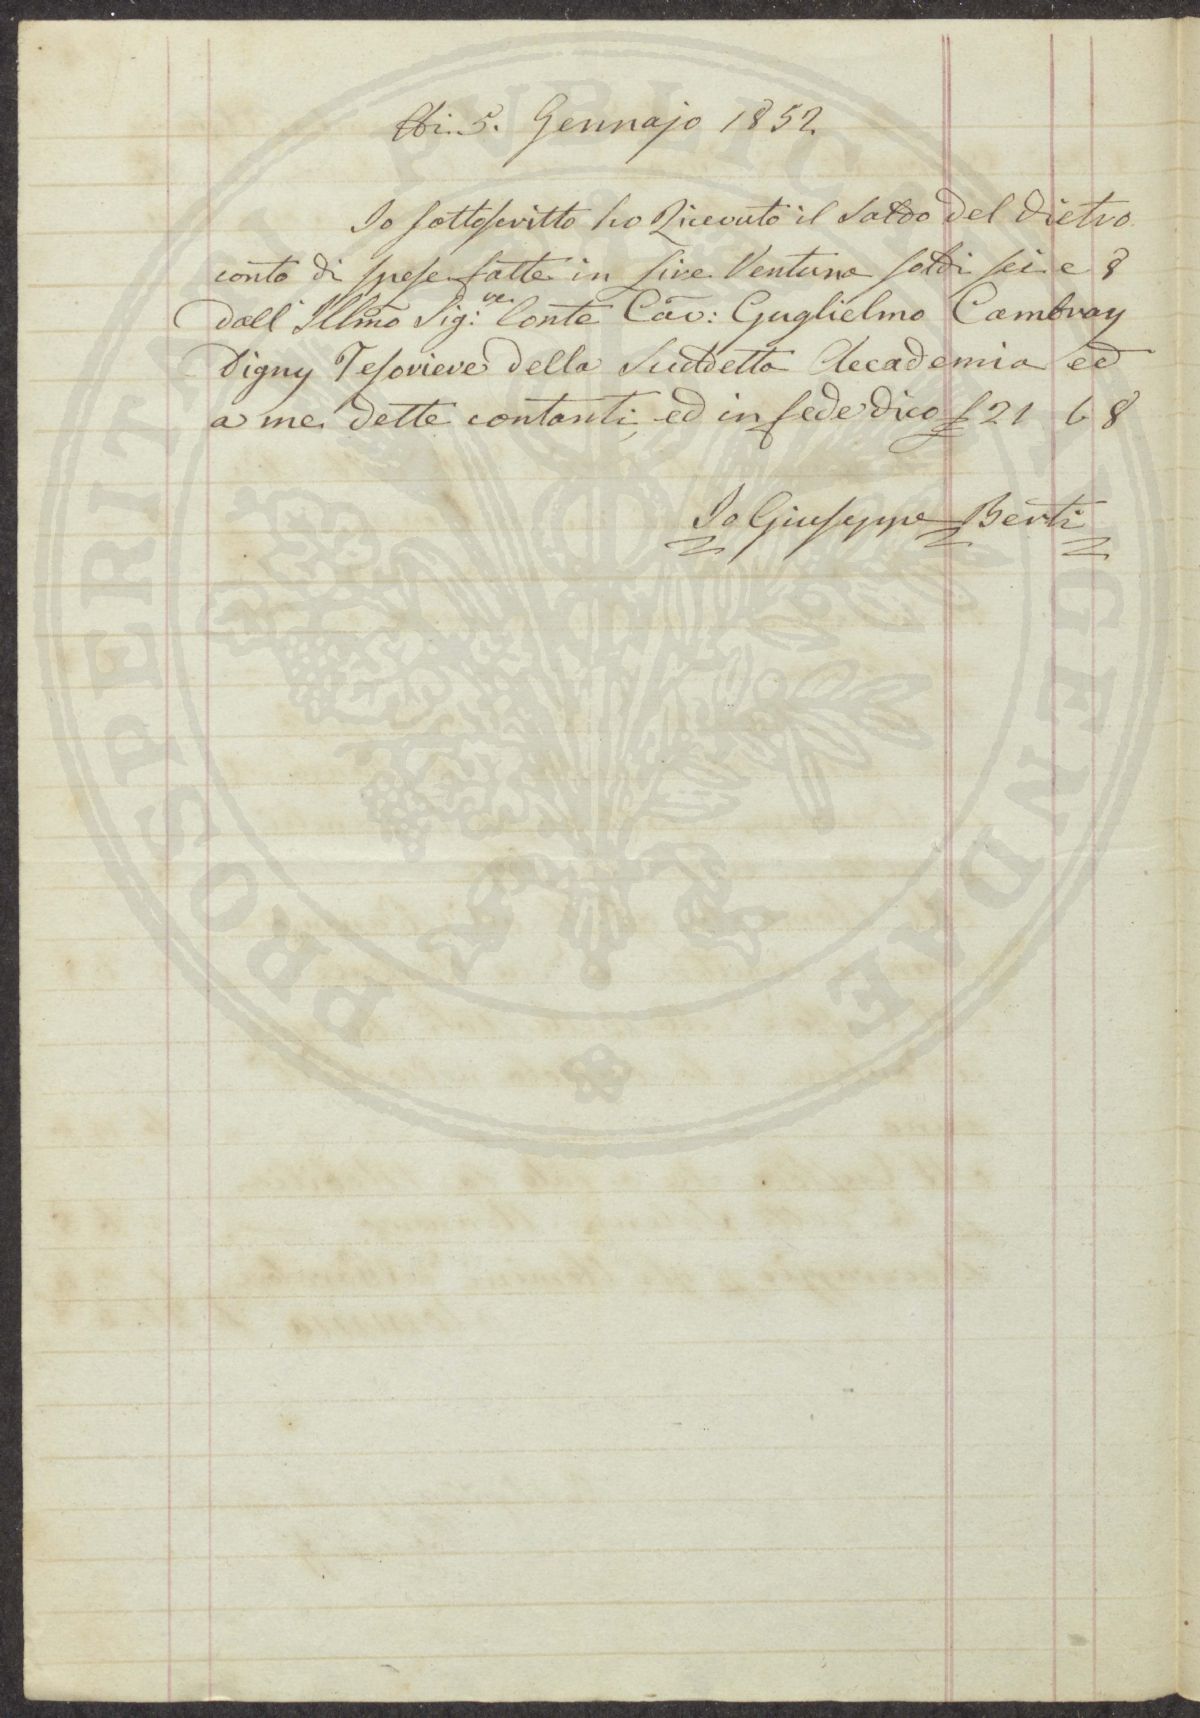 Adi. 5. Gennajo 1852.
Io sottoscritto ho Ricevuto il Saldo del Dietro
conto di spese fatte in Lire Ventuna soldi sei e 8
dall' Illmo Sig:re Conte Cav: Guglielmo Cambray
Digny Tesoriere della Suddetta Accademia ed
a me dette contanti, ed in fede dico £ 21 6 8
Io Giuseppe Berti
PROSPERITATI PUBLICAE AUGENDAE